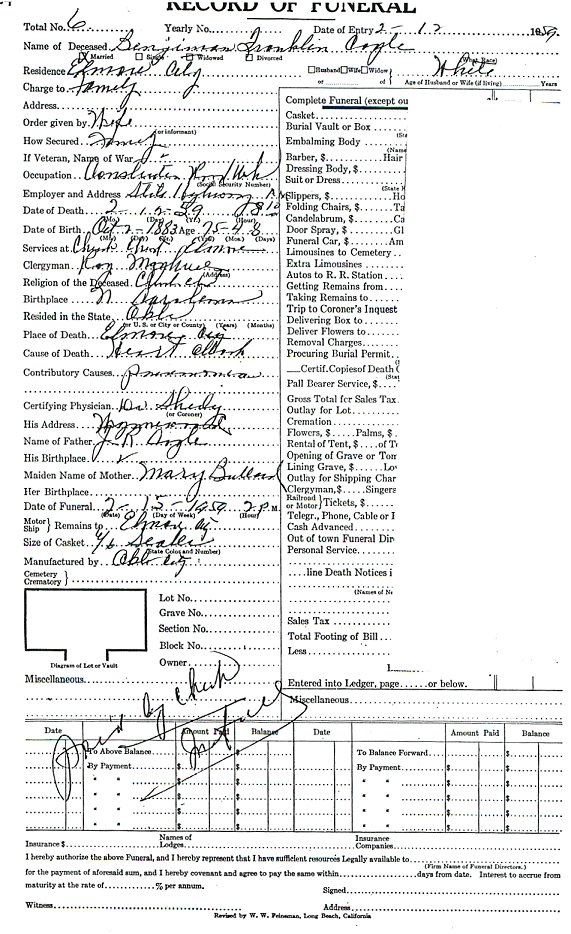 RECORD OF FUNERAL
Total No. 6 Yearly No. Date of Entry 2 - 12 1959.
Name of Deceased Benjiman Franklin Aogle
Married Single Widowed Divorced (What Race)
Residence Elmore City Husband Wife Widow White
or of Age of Husband or Wife (if living) Years
Charge to Family
Address
Order given by Wife
(or informant)
How Secured Family
If Veteran, Name of War
Occupation Construction
(Social Security Number)
Employer and Address State Highway
Date of Death 2 - 12 - 59
(Mo.) (Day) (Yr.) (Hour)
Date of Birth Oct 1883 Age 75-4-8
(Mo.) (Day) (Yr.) (Yrs.) (Mos.) (Days)
Services at Church Christ Elmore
Clergyman Roy
(Address)
Religion of the Deceased Church
Birthplace N
Resided in the State Okla
(or U. S. or City or County) (Years) (Months)
Place of Death Elmore City
Cause of Death Heart Attack
Contributory Causes Pneumonia
Certifying Physician Dr
(or Coroner)
His Address
Name of Father J. R. Aogle
His Birthplace
Maiden Name of Mother Mary Bullard
Her Birthplace
Date of Funeral 2 - 15 - 1959 2 P.M.
(Date) (Day of Week) (Hour)
Motor Ship Remains to Elmore City
Size of Casket Sealer
(State Color and Number)
Manufactured by Okla City
Cemetery
Crematory
Lot No.
Grave No.
Section No.
Block No.
Owner
Diagram of Lot or Vault
Miscellaneous
Complete Funeral (except ou
Casket
Burial Vault or Box
(Sta
Embalming Body
(Name
Barber, $ Hair
Dressing Body,
Suit or Dress
(State K
Slippers, $ Ho
Folding Chairs, $ Ta
Candelabrum, $ Ca
Door Spray, $ Gl
Funeral Car, $ Am
Limousines to Cemetery
Extra Limousines
Autos to R. R. Station
Getting Remains from
Taking Remains to
Trip to Coroner's Inquest
Delivering Box to
Deliver Flowers to
Removal Charges
Procuring Burial Permit
Certif. Copies of Death C
(Stat
Pall Bearer Service, $
Gross Total for Sales Tax
Outlay for Lot
Cremation
Flowers, $ Palms, $
Rental of Tent, $ of T
Opening of Grave or Tom
Lining Grave, $ Lov
Outlay for Shipping Char
Clergyman, $ Singers
Railroad or Motor Tickets, $
Telegr., Phone, Cable or I
Cash Advanced
Out of town Funeral Dir
Personal Service
line Death Notices i
(Names of Ne
Sales Tax
Total Footing of Bill
Less
Entered into Ledger, page or below.
Miscellaneous
Paid by Check in full
Date Amount Paid Balance Date Amount Paid Balance
To Above Balance $ To Balance Forward $
By Payment $ By Payment $
" " $ " " $
" " $ " " $
" " $ " " $
" " $ " " $
Insurance $ Names of Lodges Insurance Companies
I hereby authorize the above Funeral, and I hereby represent that I have sufficient resources Legally available to
(Firm Name of Funeral Directors.)
for the payment of aforesaid sum, and I hereby covenant and agree to pay the same within days from date. Interest to accrue from
maturity at the rate of % per annum. Signed
Witness Address
Revised by W. W. Feineman, Long Beach, California